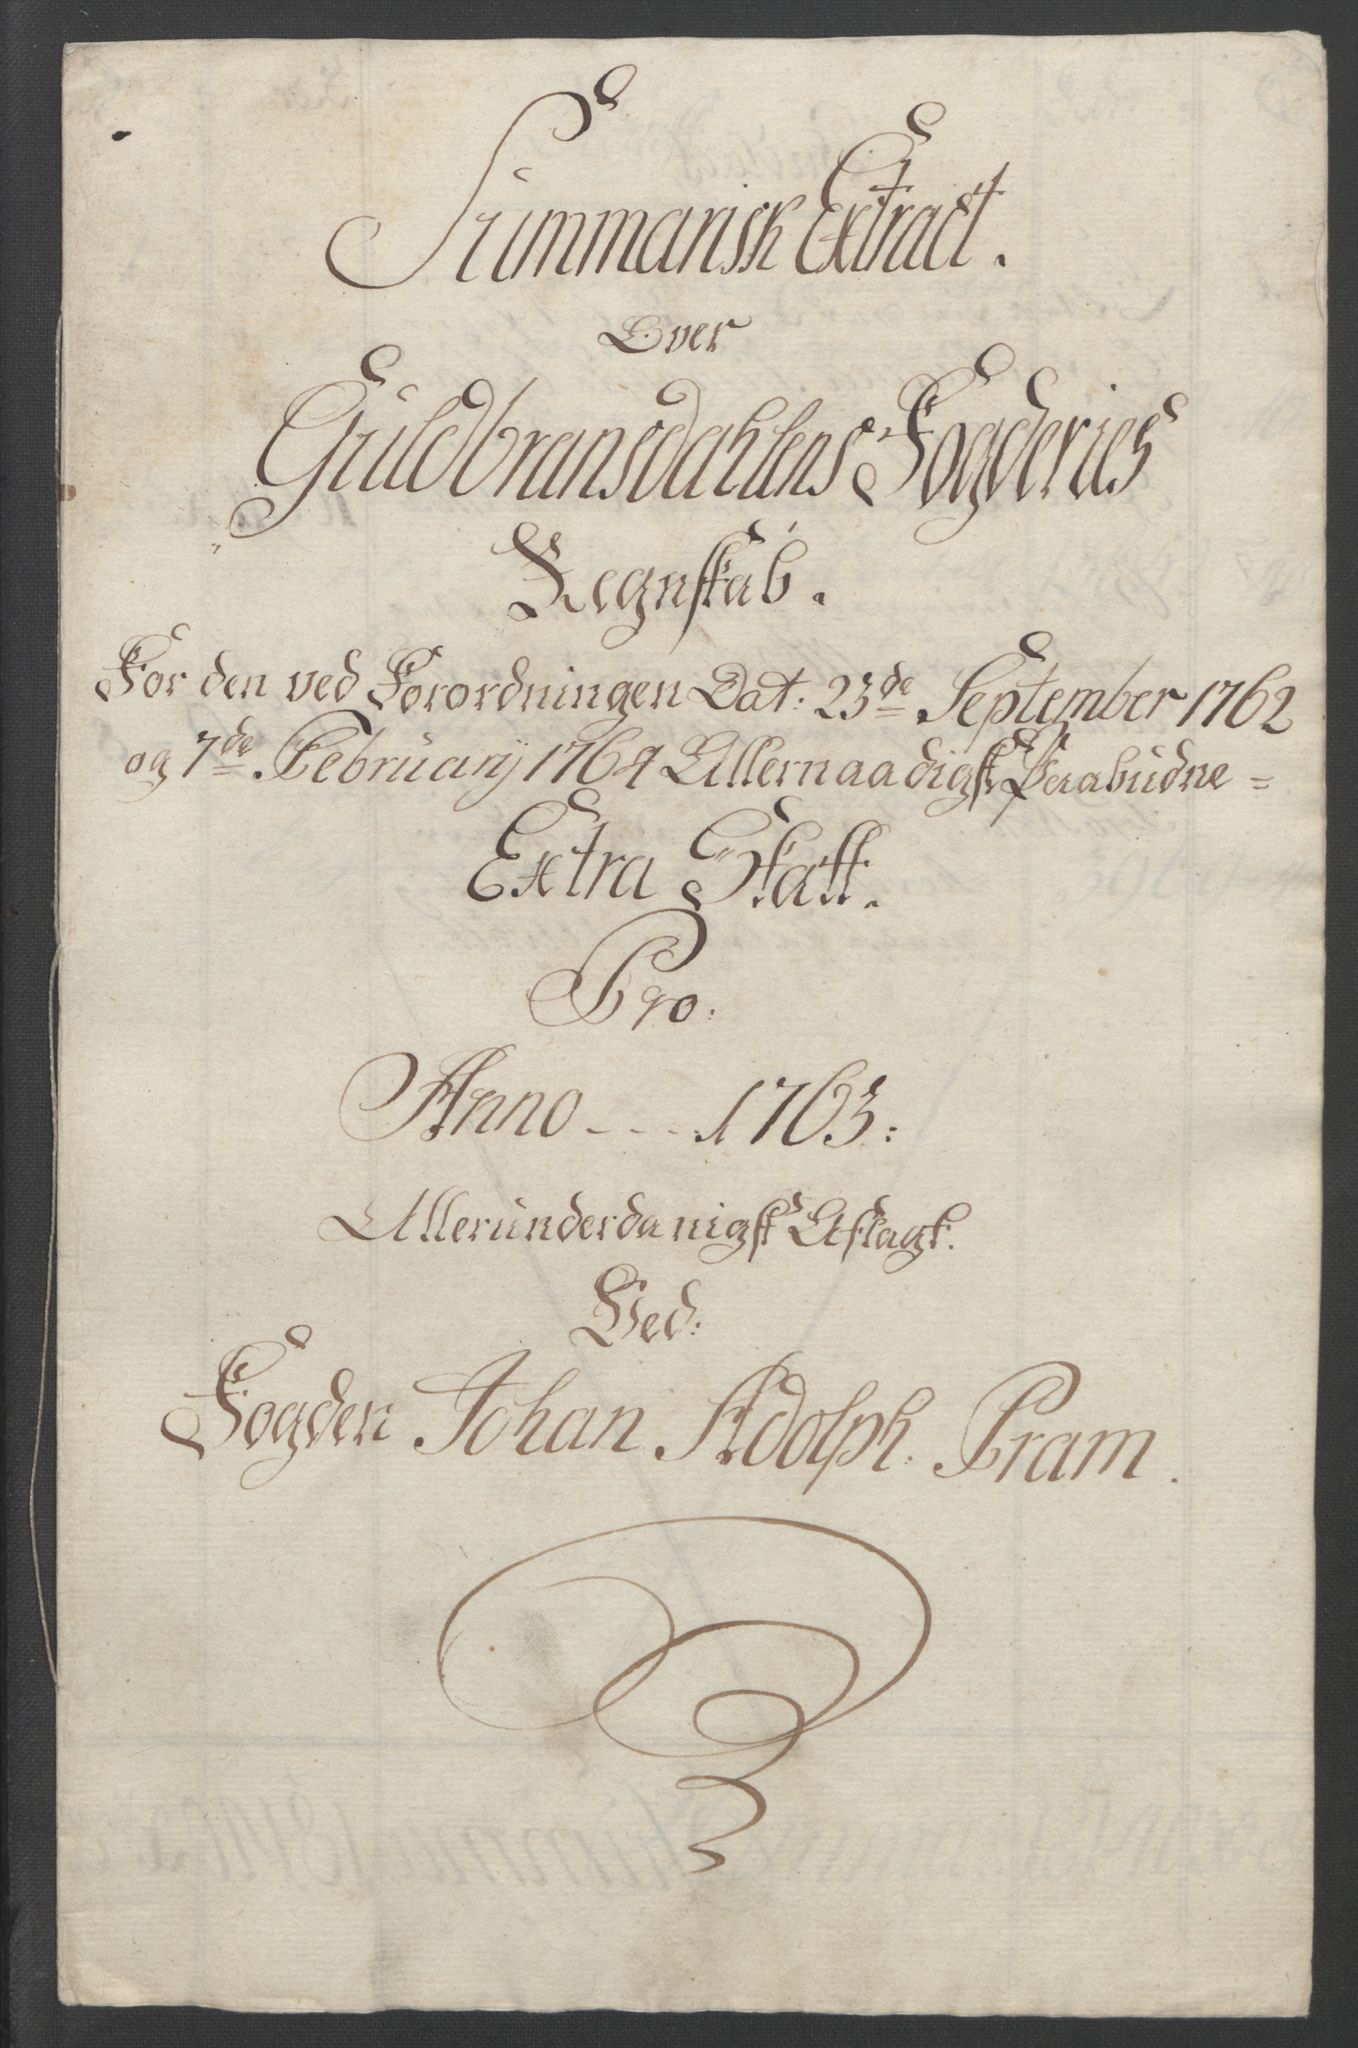 Summarisk Extract.
Over
Guldbransdahlens Fogderies
Regnskab.
For den ved Forordningen Dat: 23de September 1762
og 7de Februarij 1764 Allernaadigst Paabudne =
Extra Skatt.
Pro:
Anno - - - . 1763:
Allerunderdanigst Aflagt.
Ved:
Fogden Johan Adolph: Pram.